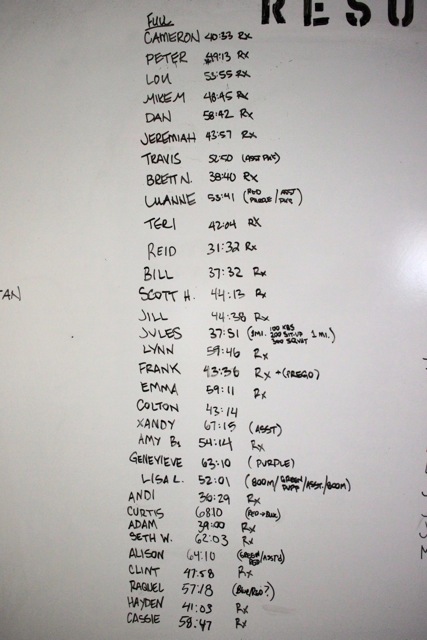 RESU
FULL
CAMERON 40:33 Rx
PETER 49:13 Rx
LOU 53:55 Rx
MIKE M 48:45 Rx
DAN 58:42 Rx
JEREMIAH 43:57 Rx
TRAVIS 52:50 (ASST PU'S)
BRETT N. 38:40 Rx
LUANNE 53:41 (RED PURPLE/ASST PU'S)
TERI 42:04 RX
REID 31:32 Rx
BILL 37:32 Rx
TAN
SCOTT H. 44:13 Rx
JILL 44:38 Rx
JULES 37:51 (1MI. 100 KBS 200 SIT-UP 300 SQUAT 1 MI.)
LYNN 59:46 Rx
FRANK 43:36 Rx + (PREGO)
EMMA 59:11 Rx
COLTON 43:14
XANDY 67:15 (ASST)
AMY B. 54:14 Rx
GENEVIEVE 63:10 (PURPLE)
LISA L. 52:01 (BOOM/GREEN PURP/ASST./BOOM)
ANDI 36:29 Rx
CURTIS 68:10 (RED→BLUE)
ADAM 39:00 Rx
SETH W. 62:03 Rx
ALISON 64:10 (GREEN RED/ASST'D)
CLINT 47:58 Rx
RAQUEL 57:18 (BLUE/RED?)
HAYDEN 41:03 Rx
CASSIE 58:47 Rx